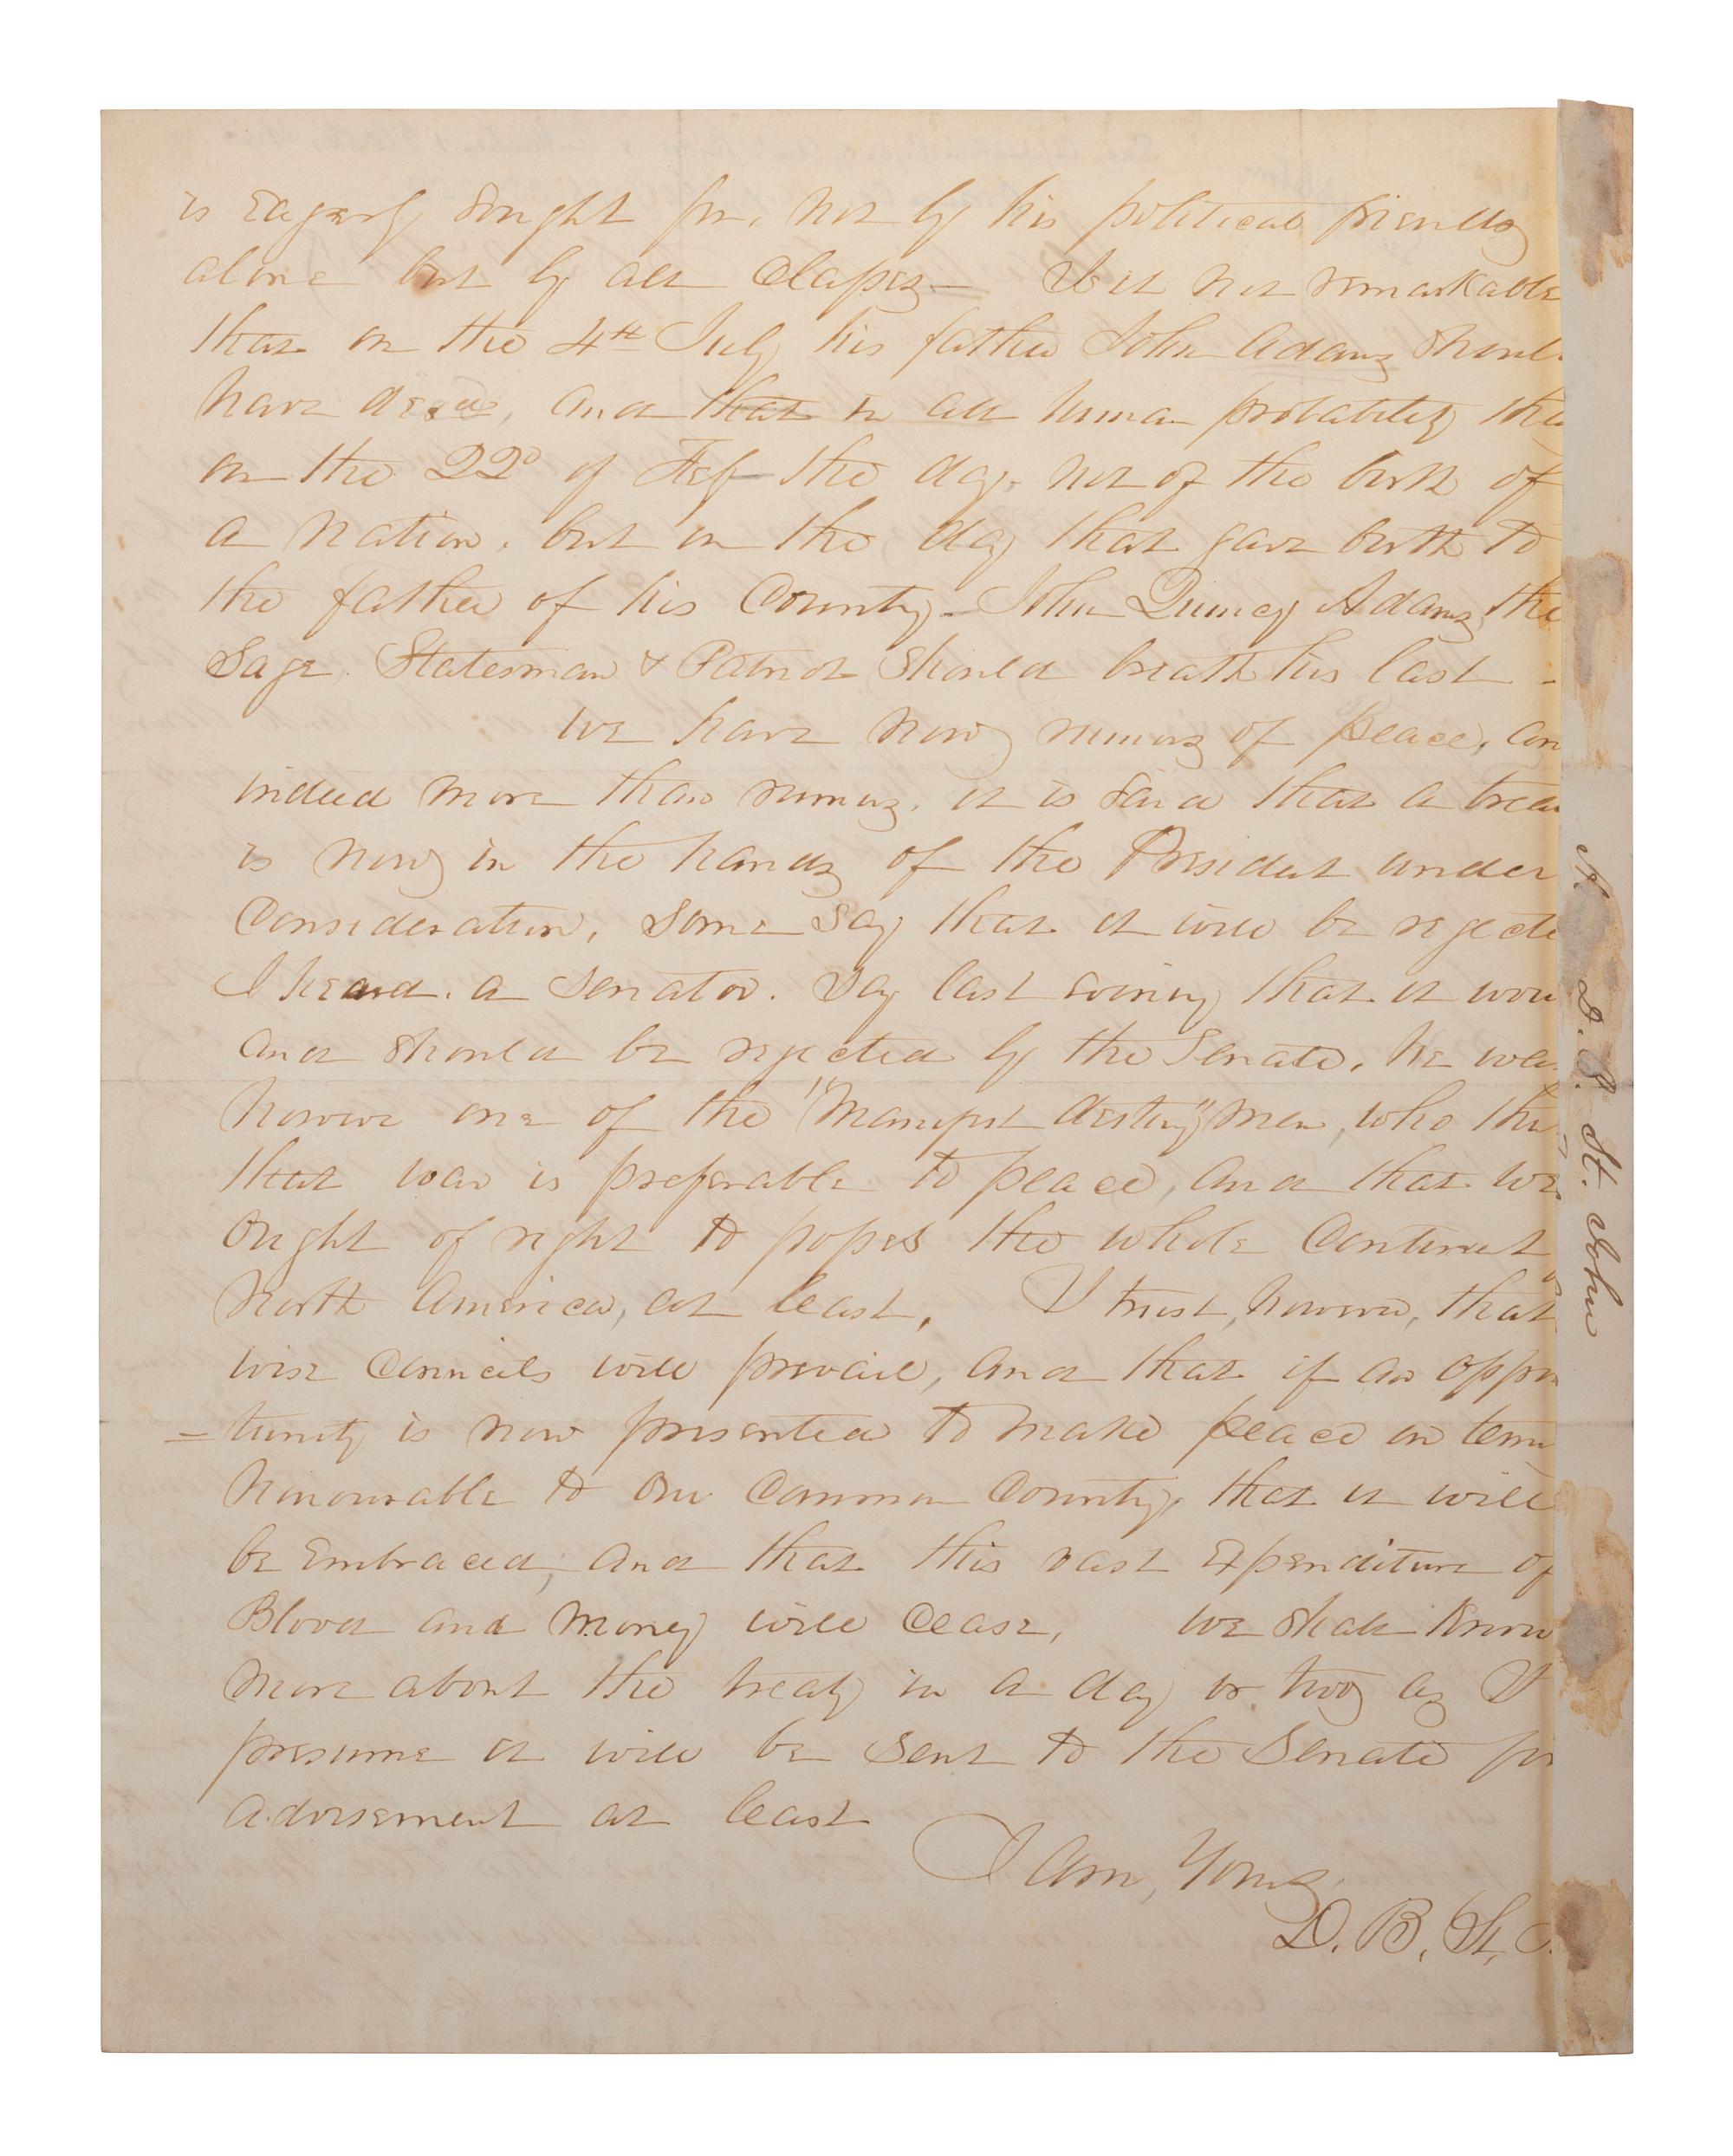 is eagerly sought for, not by his political friends
alone but by all classes — Is it not remarkable
that on the 4th July his father John Adams shoul
have died, and that in all human probability tha
on the 22d of Feb the day, not of the birth of
a nation, but on the day that gave birth to
the father of his County — John Quincy Adams, the
Sage Statesman & Patriot should breath his last -
We have now rumors of peace, an
indeed more than rumors, it is said that a trea
is now in the hands of the President under
Consideration, some say that it will be rejecte
I heard a Senator say last evening that it wou
and should be rejected by the Senate, he wa
however one of the "Manifest destiny" men, who thin
that war is preferable to peace, and that we
ought of right to posses the whole Continent
North America, at least, I trust, however, that
wise Councils will prevail, and that if an oppor
= tunity is now presented to make peace on term
honourable to our Common County, that it will
be Embraced, and that this vast Expenditure of
Blood and Money will cease, We shall know
more about the treaty in a day or two as I
presume it will be sent to the Senate for
advisement at least
I am, Yours
D. B. St. J
D. B. St. John